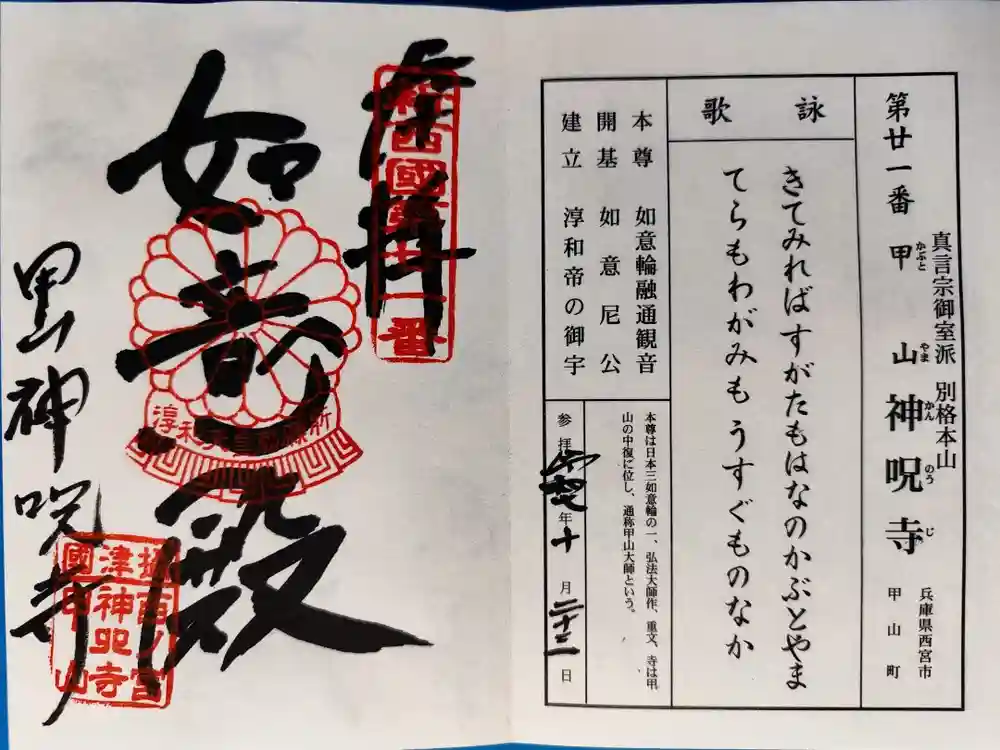 真言宗御室派 別格本山
第廿一番 甲山神呪寺
かぶと やま かん のう じ
兵庫県西宮市
甲山町
詠歌
きてみればすがたもはなのかぶとやま
てらもわがみもうすぐものなか
本尊 如意輪融通観音
開基 如意尼公
建立 淳和帝の御宇
本尊は日本三如意輪の一、弘法大師作、重文、寺は甲
山の中復に位し、通称甲山大師という。
参拝 年 十 月 二十二 日
奉拝
新西國第廿一番
如意殿
甲山神呪寺
攝津國
西八宮
神呪寺
甲山